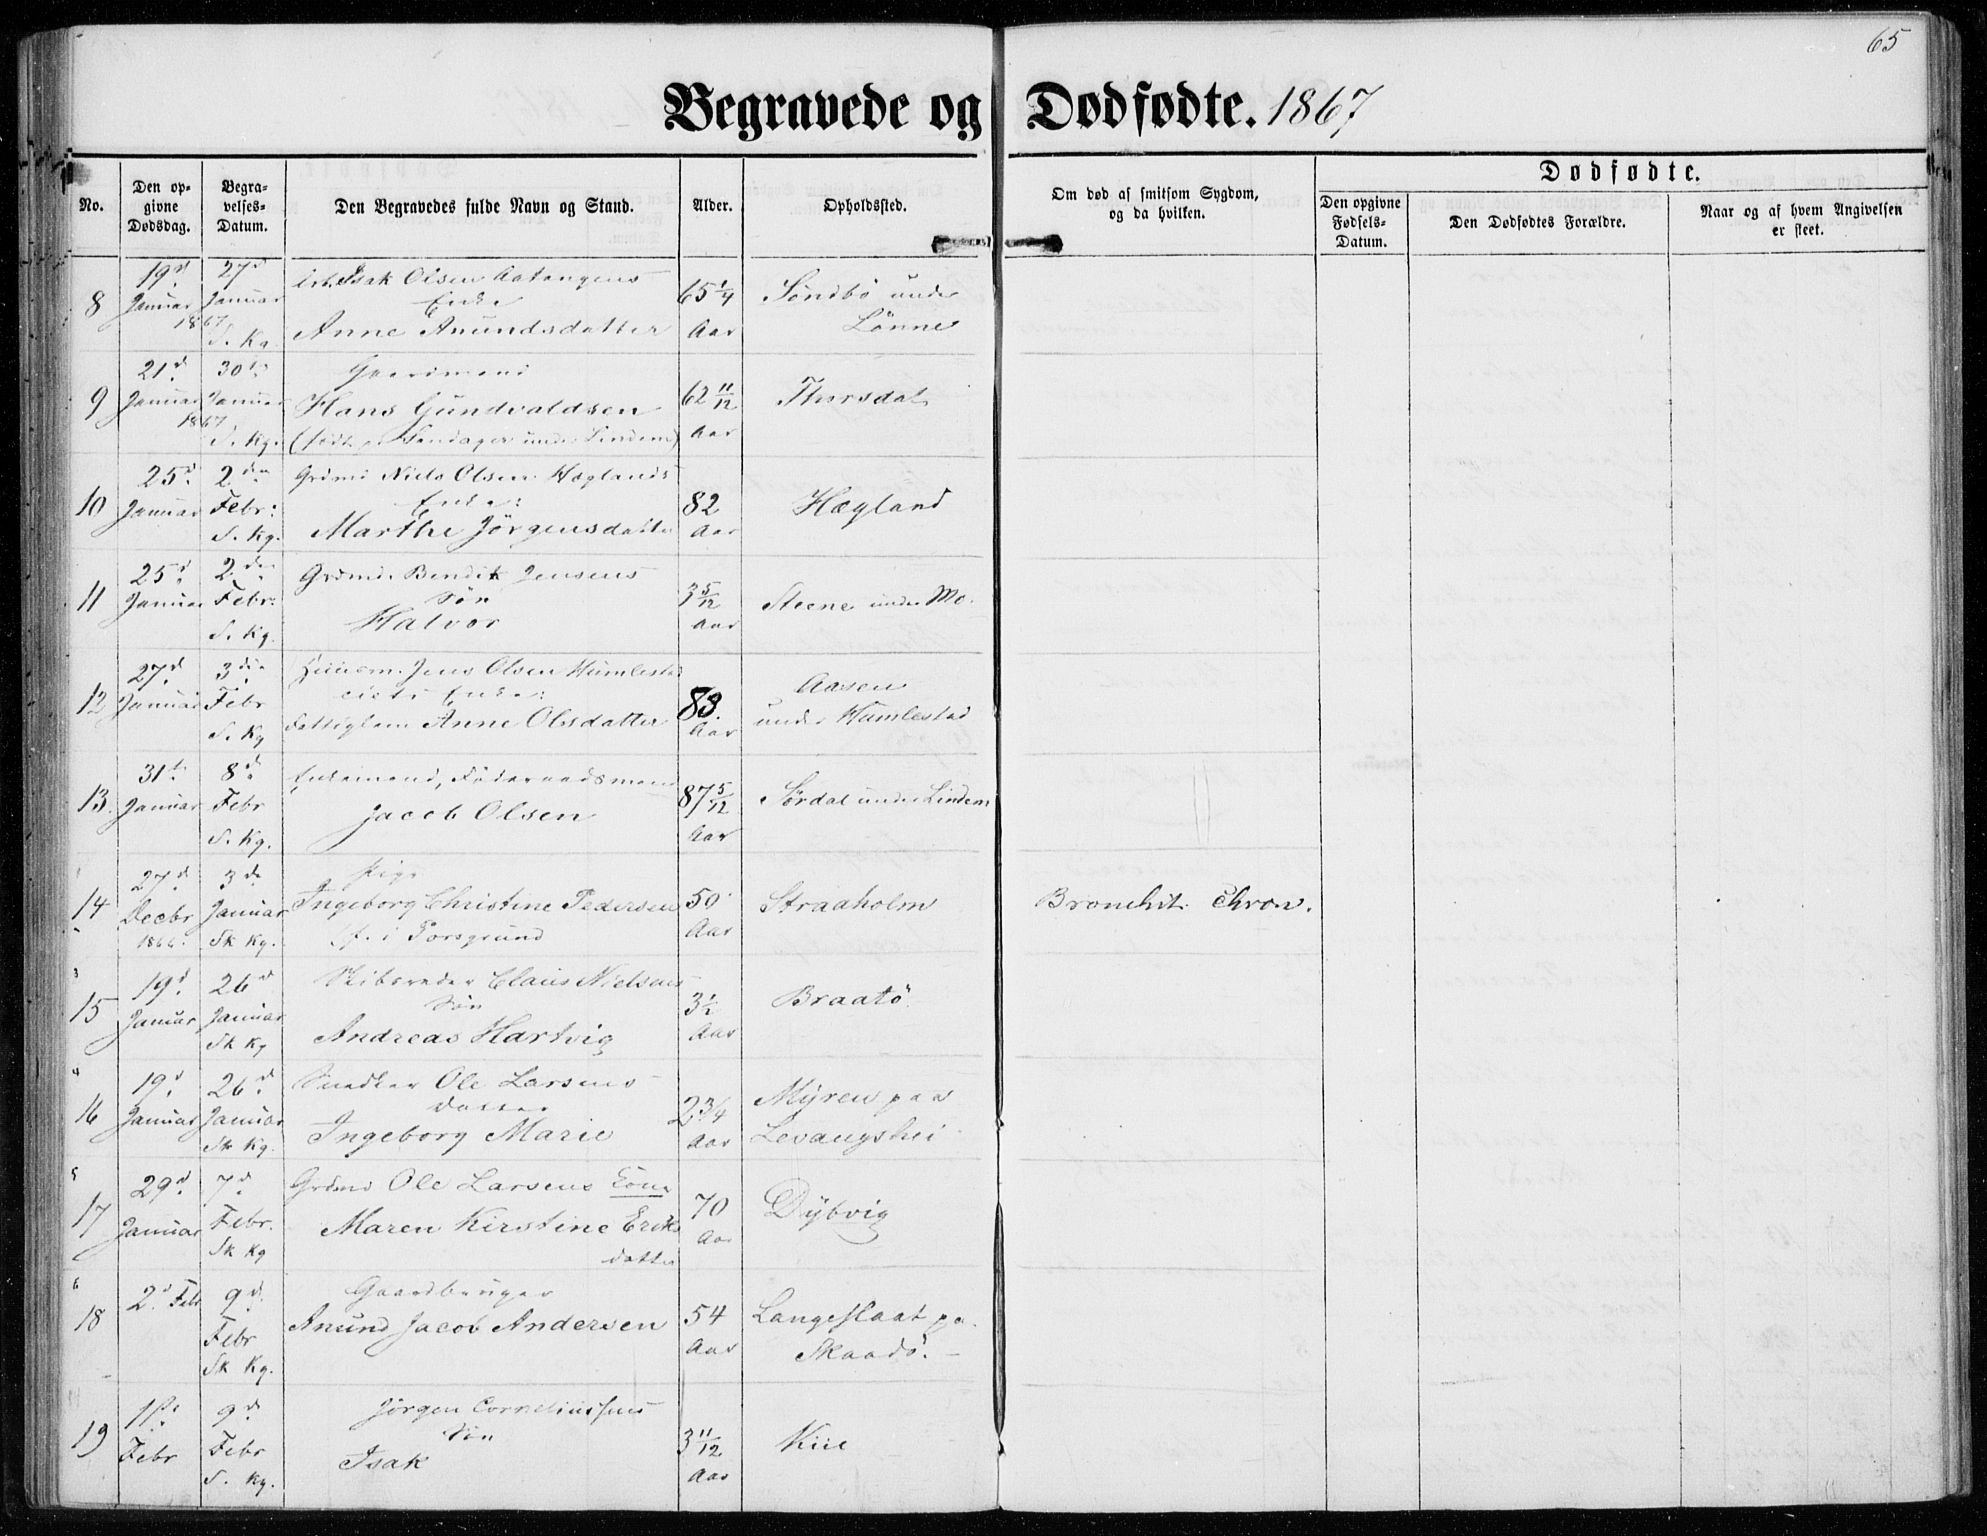 65
Begravede og Dødfødte. 1867
No.
Den op-
givne
Dødsdag.
Begra-
velses-
Datum.
Den Begravedes fulde Navn og Stand.
Alder.
Opholdssted.
Om død af smitsom Sygdom,
og da hvilken.
Dødfødte.
Den opgivne
Fødsels-
Datum.
Den Dødfødtes Forældre.
Naar og af hvem Angivelsen
er skeet.
8
19d
Januar
1867
27d
Januar
S. Kg.
Isak Olsen Aatangens
Enke
Anne Anundsdatter
65 1/4
Aar
Söndbö under
Lönne
9
21d
Januar
1867
30te
Januar
S. Kg.
Gaardmand
Hans Gundvaldsen
62 11/12
Aar
Thorsdal
10
25d
Januar
2den
Febr:
S. Kg.
Grdmd Niels Olsen Hæglands
Enke:
Marthe Jörgensdatter
82
Aar
Hægland
11
25d
Januar
2den
Febr:
S. Kg.
Grdmd. Bendik Jensens
Sön
Halvor
3 5/12
Aar
Steene under Mo.
12
27d
Januar
3die
Febr
S. Kg
Huusm. Jens Olsen Humlestad
eiets Enke:
Fattiglem Anne Olsdatter
83.
Aar
Aasen
under Humlestad
13.
31te
Januar
8d
Febr
S. Kg.
Enkemand, Föderaadsmand
Jacob Olsen
87 5/12
Aar
Sördal under Lindem
14
27d
Decbr
1866.
3de
Januar
Sk Kg.
Pige
Ingeborg Christine Pedersen
f. i Porsgrund
50
Aar
Straaholm
Bronchit. Chron.
3
15
19d
Januar
26d
Januar
Sk Kg
Skibsreder Claus Nielsens
Sön
Andreas Hartvig
3 1/2
Aar
Braatö
4
16
19d
Januar
26d
Januar
Sk Kg.
Snedker Ole Larsens
Datter
Ingeborg Marie
2 3/4
Aar
Myren paa
Levangshei
5
17
29d
Januar
7d
Febr.
Sk Kg
Grdmd Ole Larsens Kone
Maren Kirstine Eriks
datter
70
Aar
Dybvig
6
18
2d Febr
9d
Febr
Sk Kg.
Gaardbruger
Anund Jacob Andersen
54
Aar
Langeslaat pa.
Skaadö.
19
1ste
Febr
9d
Febr
S. Kg.
Jörgen Corneliussens
Sön
Isak
3 11/12
Aar
Kiil